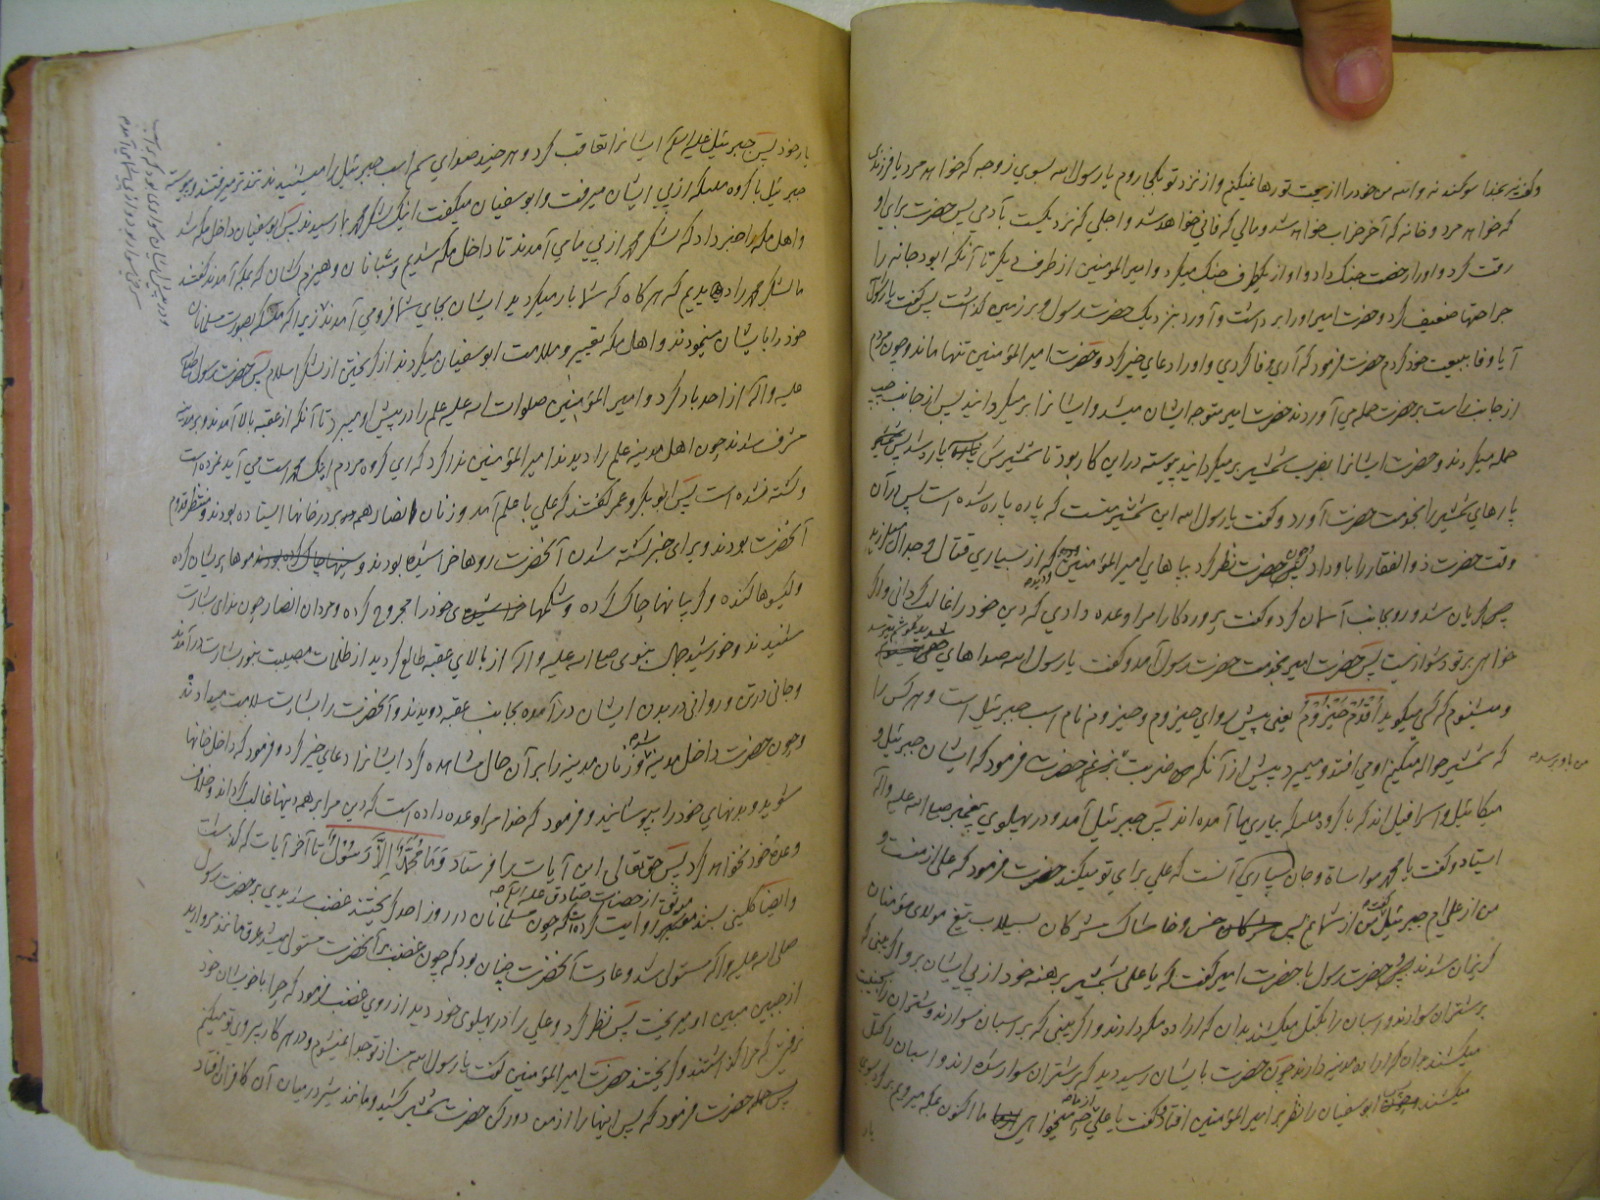 و گریه بخدا سوگند نه والله من خود را از بیعت تو رها نمیکنم و از نزد تو بکجا روم یا رسول الله بسوی زوجه که خواهد مرد یا فرزندی
که خواهد مرد و خانه که آخر خراب خواهد شد و مالی که فانی خواهد شد و اجلی که نزدیکست بآدمی پس حضرت برای او
رقت کرد و او را رخصت جنگ داد و او از یکطرف جنگ میکرد و امیر المؤمنین از طرف دیگر تا آنکه ابو دجانه را
جراحتها ضعیف کرد و حضرت امیر او را برداشت و آورد بنزدیک حضرت رسول و بر زمین گذاشت پس گفت یا رسول الله
آیا وفا ببیعت خود کردم حضرت فرمود که آری وفا کردی و او را دعای خیر کرد و حضرت امیر المؤمنین تنها ماند و چون مردم
از جانب راست بر حضرت حمله می آوردند حضرت امیر متوجه ایشان میشد و ایشانرا بر میگردانید پس از جانب چپ
حمله میکردند و حضرت ایشانرا بضرب شمشیر بر میگردانید پیوسته در این کار بود تا شمشیرش پاره شد پس
پارهای شمشیر را بخدمت حضرت آورد و گفت یا رسول الله این شمشیر منست که پاره پاره شده است پس در آن
وقت حضرت ذو الفقار را باو داد و چون حضرت نظر کرد بپاهای امیر المؤمنین که از بسیاری قتال و جدال میلرزید
پس گریان شد و رو بجانب آسمان کرد و گفت پروردگارا مرا وعده دادی که دین خود را غالب گردانی و اگر
خواهی بر تو دشوار نیست پس حضرت امیر بخدمت حضرت رسول آمد و گفت یا رسول الله صداهای
شدید بگوشم میرسد
و میشنوم که کسی میگوید أَقْدِمْ حَیْزُوْمُ یعنی پیش رو ای حیزوم و حیزوم نام اسب جبرئیل است و هر کس را
که شمشیر حواله میکنم او می افتد و میمیرد پیش از آنکه ضربت من باو برسد حضرت فرمود که ایشان جبرئیل و
میکائیل و اسرافیل اند که با گروه ملئکه بیاری ما آمده اند پس جبرئیل آمد و در پهلوی پیغمبر صلی الله علیه و آله
ایستاد و گفت یا محمد مواساة و جان سپاری آنست که علی برای تو میکند حضرت فرمود که علی از منست و
من از علی ام جبرئیل گفت من از شمایم پس خس و خاشاک مشرکان بسیلاب تیغ مولای مؤمنان
گریزان شدند پس حضرت رسول با حضرت امیر گفت که یا علی بشمشیر برهنه خود از پی ایشان برو اگر بینی که
بر شتران سوارند و اسبان را بکتل میکشند بدان که اراده مکه دارند و اگر بینی که بر اسبان سوارند و شتران را بکتل
میکشند بدان که اراده مدینه دارند چون حضرت بایشان رسید دید که بر شتران سوار شده اند و اسبان را بکتل
میکشند چون ابو سفیان را نظر بر امیر المؤمنین افتاد گفت یا علی از ما چه میخواهی ما اکنون بمکه میرویم برگرد بسوی
یار
بار خود پس جبرئیل علیه السلام ایشانرا تعاقب کرد و هر چند صدای سم اسب جبرئیل را میشنیدند تندتر میرفتند و پیوسته
جبرئیل با گروه ملئکه از پی ایشان میرفت و ابو سفیان میگفت اینک لشکر محمد بما رسیدند پس ابو سفیان داخل مکه شد
و اهل مکه را خبر داد که لشکر محمد از پی ما می آمدند تا داخل مکه شدیم و شبانان و هیزم کشان که بمکه آمدند گفتند
ما لشکر محمد را دیدیم که هر گاه که شما بار میکردید ایشان بجای شما فرو می آمدند زیرا که ملئکه بصورت مسلمانان
خود را بایشان مینمودند و اهل مکه تعییر و ملامت ابو سفیان میکردند از گریختن از لشکر اسلام پس حضرت رسول صلی الله
علیه و آله از احد بار کرد و امیر المؤمنین صلوات الله علیه علم را در پیش او میبرد تا آنکه از عقبه بالا آمدند و بر مدینه
مشرف شدند چون اهل مدینه علم را دیدند امیر المؤمنین ندا کرد که ای گروه مردم اینک محمد است می آید نمرده است
و کشته نشده است پس ابو بکر و عمر گفتند که علی با علم آمد و زنان انصار همه بر در خانها ایستاده بودند و منتظر قدوم
آنحضرت بودند و برای خبر کشته شدن آنحضرت روها خراشیده بودند و موها پریشان کرده
و گیسوها کنده و گریبانها چاک کرده و شکمهای خود را مجروح کرده و مردان انصار چون ندای بشارت
شنیدند و خورشید جمال نبوی صلی الله علیه و آله از بالای عقبه طالع گردید از ظلمات مصیبت بنور بشارت در آمدند
و جانی در تن و روانی در بدن ایشان در آمده بجانب عقبه دویدند و آنحضرت را بشارت سلامت میدادند
و چون حضرت داخل مدینه شد و زنان مدینه را بر آن حال مشاهده کرد ایشانرا دعای خیر کرد و فرمود که داخل خانها
شوید و بدنهای خود را بپوشانید و فرمود که خدا مرا وعده داده است که دین مرا بر همه دینها غالب گرداند و خلاف
وعده خود نخواهد کرد پس حق تعالی این آیات را فرستاد وَمَا مُحَمَّدٌ إِلَّا رَسُوْلٌ تا آخر آیات که گذشت
و ایضا کلینی بسند موثق از حضرت صادق علیه السلام روایت کرده است که چون مسلمانان در روز احد گریختند غضب شدیدی بر حضرت رسول
صلی الله علیه و آله مستولی شد و عادت آنحضرت چنان بود که چون غضب بر آنحضرت مستولی میشد عرق مانند مروارید
از جبین مبین او میریخت پس نظر کرد و علی را در پهلوی خود دید از روی غضب فرمود که چرا با خویشان خود
نرفتی که مرا گذاشتند و گریختند حضرت امیر المؤمنین گفت یا رسول الله من از تو جدا نمیشوم و در هر کار پیروی تو میکنم
پس حمله حضرت فرمود که پس اینها را از من دور کن حضرت شمشیر کشید و مانند شیر در میان آن کافران افتاد